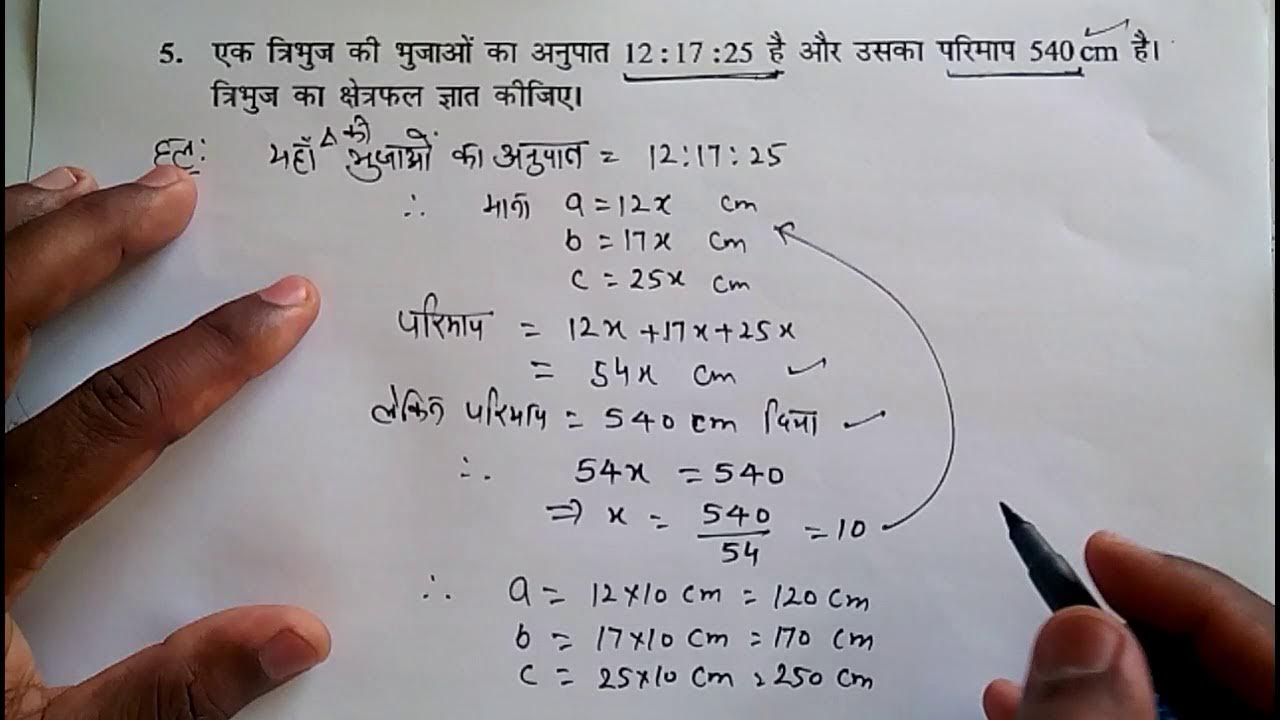 5. एक त्रिभुज की भुजाओं का अनुपात 12 : 17 : 25 है और उसका परिमाप 540 cm है।
त्रिभुज का क्षेत्रफल ज्ञात कीजिए।
हल: यहाँ Δ की भुजाओं का अनुपात = 12:17:25
∴ माना a = 12x cm
b = 17x cm
c = 25x cm
परिमाप = 12x + 17x + 25x
= 54x cm
लेकिन परिमाप = 540 cm दिया
∴ 54x = 540
⇒ x = 540/54 = 10
∴ a = 12×10 cm = 120 cm
b = 17×10 cm = 170 cm
c = 25×10 cm = 250 cm